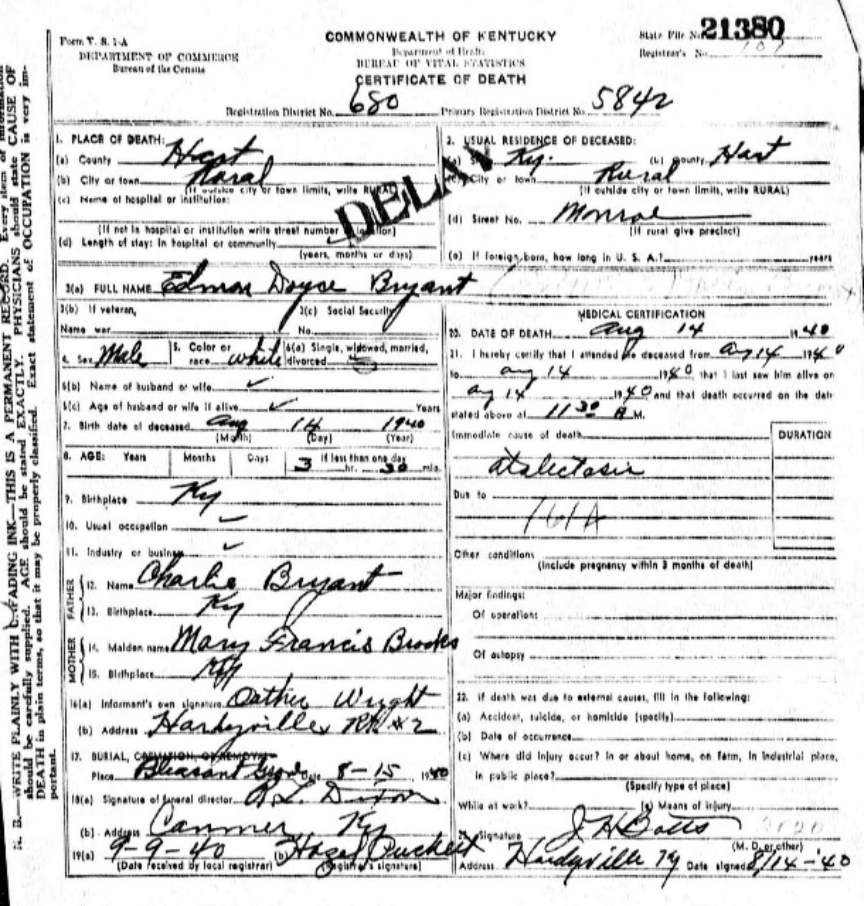 Form V. S. 1-A
DEPARTMENT OF COMMERCE
Bureau of the Census
COMMONWEALTH OF KENTUCKY
Department of Health
BUREAU OF VITAL STATISTICS
CERTIFICATE OF DEATH
State File No. 21380
Registrar's No.
Registration District No. 680 Primary Registration District No. 5842
1. PLACE OF DEATH:
(a) County Hart
(b) City or town Rural
(If outside city or town limits, write RURAL)
(c) Name of hospital or institution:
(If not in hospital or institution write street number or location)
(d) Length of stay: In hospital or community
(years, months or days)
2. USUAL RESIDENCE OF DECEASED:
(a) State Ky. (b) County Hart
(c) City or town Rural
(If outside city or town limits, write RURAL)
(d) Street No. Monroe
(If rural give precinct)
(e) If foreign born, how long in U. S. A.? years
3(a) FULL NAME Edmon Doyce Bryant
3(b) If veteran,
Name war
3(c) Social Security
No.
4. Sex Male 5. Color or race white 6(a) Single, widowed, married, divorced
6(b) Name of husband or wife ✓
6(c) Age of husband or wife if alive ✓ Years
7. Birth date of deceased Aug 14 1940
(Month) (Day) (Year)
8. AGE: Years Months Days If less than one day
3 hr. 30 min.
9. Birthplace Ky
10. Usual occupation ✓
11. Industry or business ✓
FATHER
12. Name Charlie Bryant
13. Birthplace Ky
MOTHER
14. Maiden name Mary Francis Brooks
15. Birthplace Ky
16(a) Informant's own signature Oather Wright
(b) Address Hardyville RR #2
17. BURIAL, CREMATION, OR REMOVAL
Place Pleasant Grove Date 8-15 1940
18(a) Signature of funeral director R L Dixon
(b) Address Canmer Ky
19(a) 9-9-40 (b) Hazel Puckett
(Date received by local registrar) (Registrar's signature)
MEDICAL CERTIFICATION
20. DATE OF DEATH Aug 14 1940
21. I hereby certify that I attended the deceased from Aug 14 1940
to Aug 14 1940, that I last saw him alive on
Aug 14 1940 and that death occurred on the date
stated above at 11 30 A M.
Immediate cause of death DURATION
atalectasis
Due to
161A
Other conditions
(Include pregnancy within 3 months of death)
Major findings:
Of operations
Of autopsy
22. If death was due to external causes, fill in the following:
(a) Accident, suicide, or homicide (specify)
(b) Date of occurrence
(c) Where did injury occur? In or about home, on farm, in industrial place,
in public place?
(Specify type of place)
While at work? (e) Means of injury
23. Signature J H Botts
(M. D. or other)
Address Hardyville Ky Date signed 8/14-'40
N. B.—WRITE PLAINLY WITH UNFADING INK—THIS IS A PERMANENT RECORD. Every item of information
should be carefully supplied. AGE should be stated EXACTLY. PHYSICIANS should state CAUSE OF
DEATH in plain terms, so that it may be properly classified. Exact statement of OCCUPATION is very im-
portant.